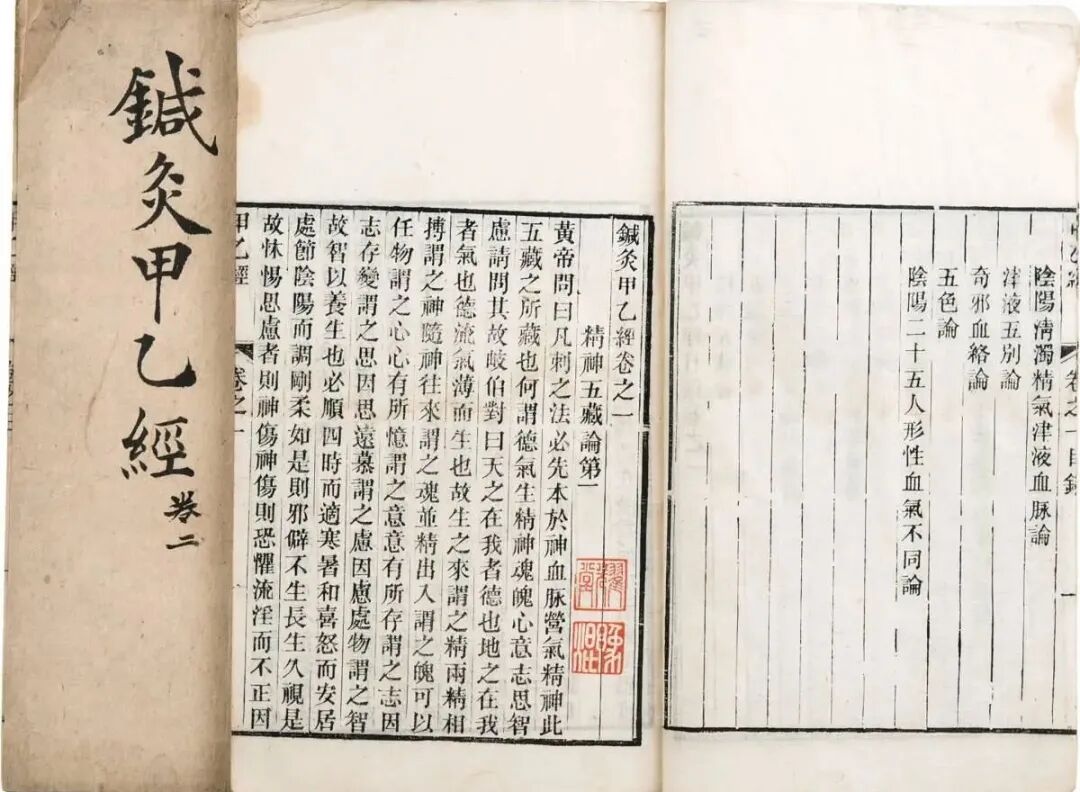 卷之一目錄
一
陰陽清濁精氣津液血脉論
津液五別論
奇邪血絡論
五色論
陰陽二十五人形性血氣不同論
鍼灸甲乙經卷之一
精神五藏論第一
黃帝問曰凡刺之法必先本於神血脉營氣精神此
五藏之所藏也何謂德氣生精神魂魄心意志思智
慮請問其故岐伯對曰天之在我者德也地之在我
者氣也德流氣薄而生也故生之來謂之精兩精相
搏謂之神隨神往來謂之魂並精出入謂之魄可以
任物謂之心心有所憶謂之意意有所存謂之志因
志存變謂之思因思遠慕謂之慮因慮處物謂之智
故智以養生也必順四時而適寒暑和喜怒而安居
處節陰陽而調剛柔如是則邪僻不生長生久視是
故怵惕思慮者則神傷神傷則恐懼流淫而不正因
甲乙經
卷之一
鍼灸甲乙經
卷二